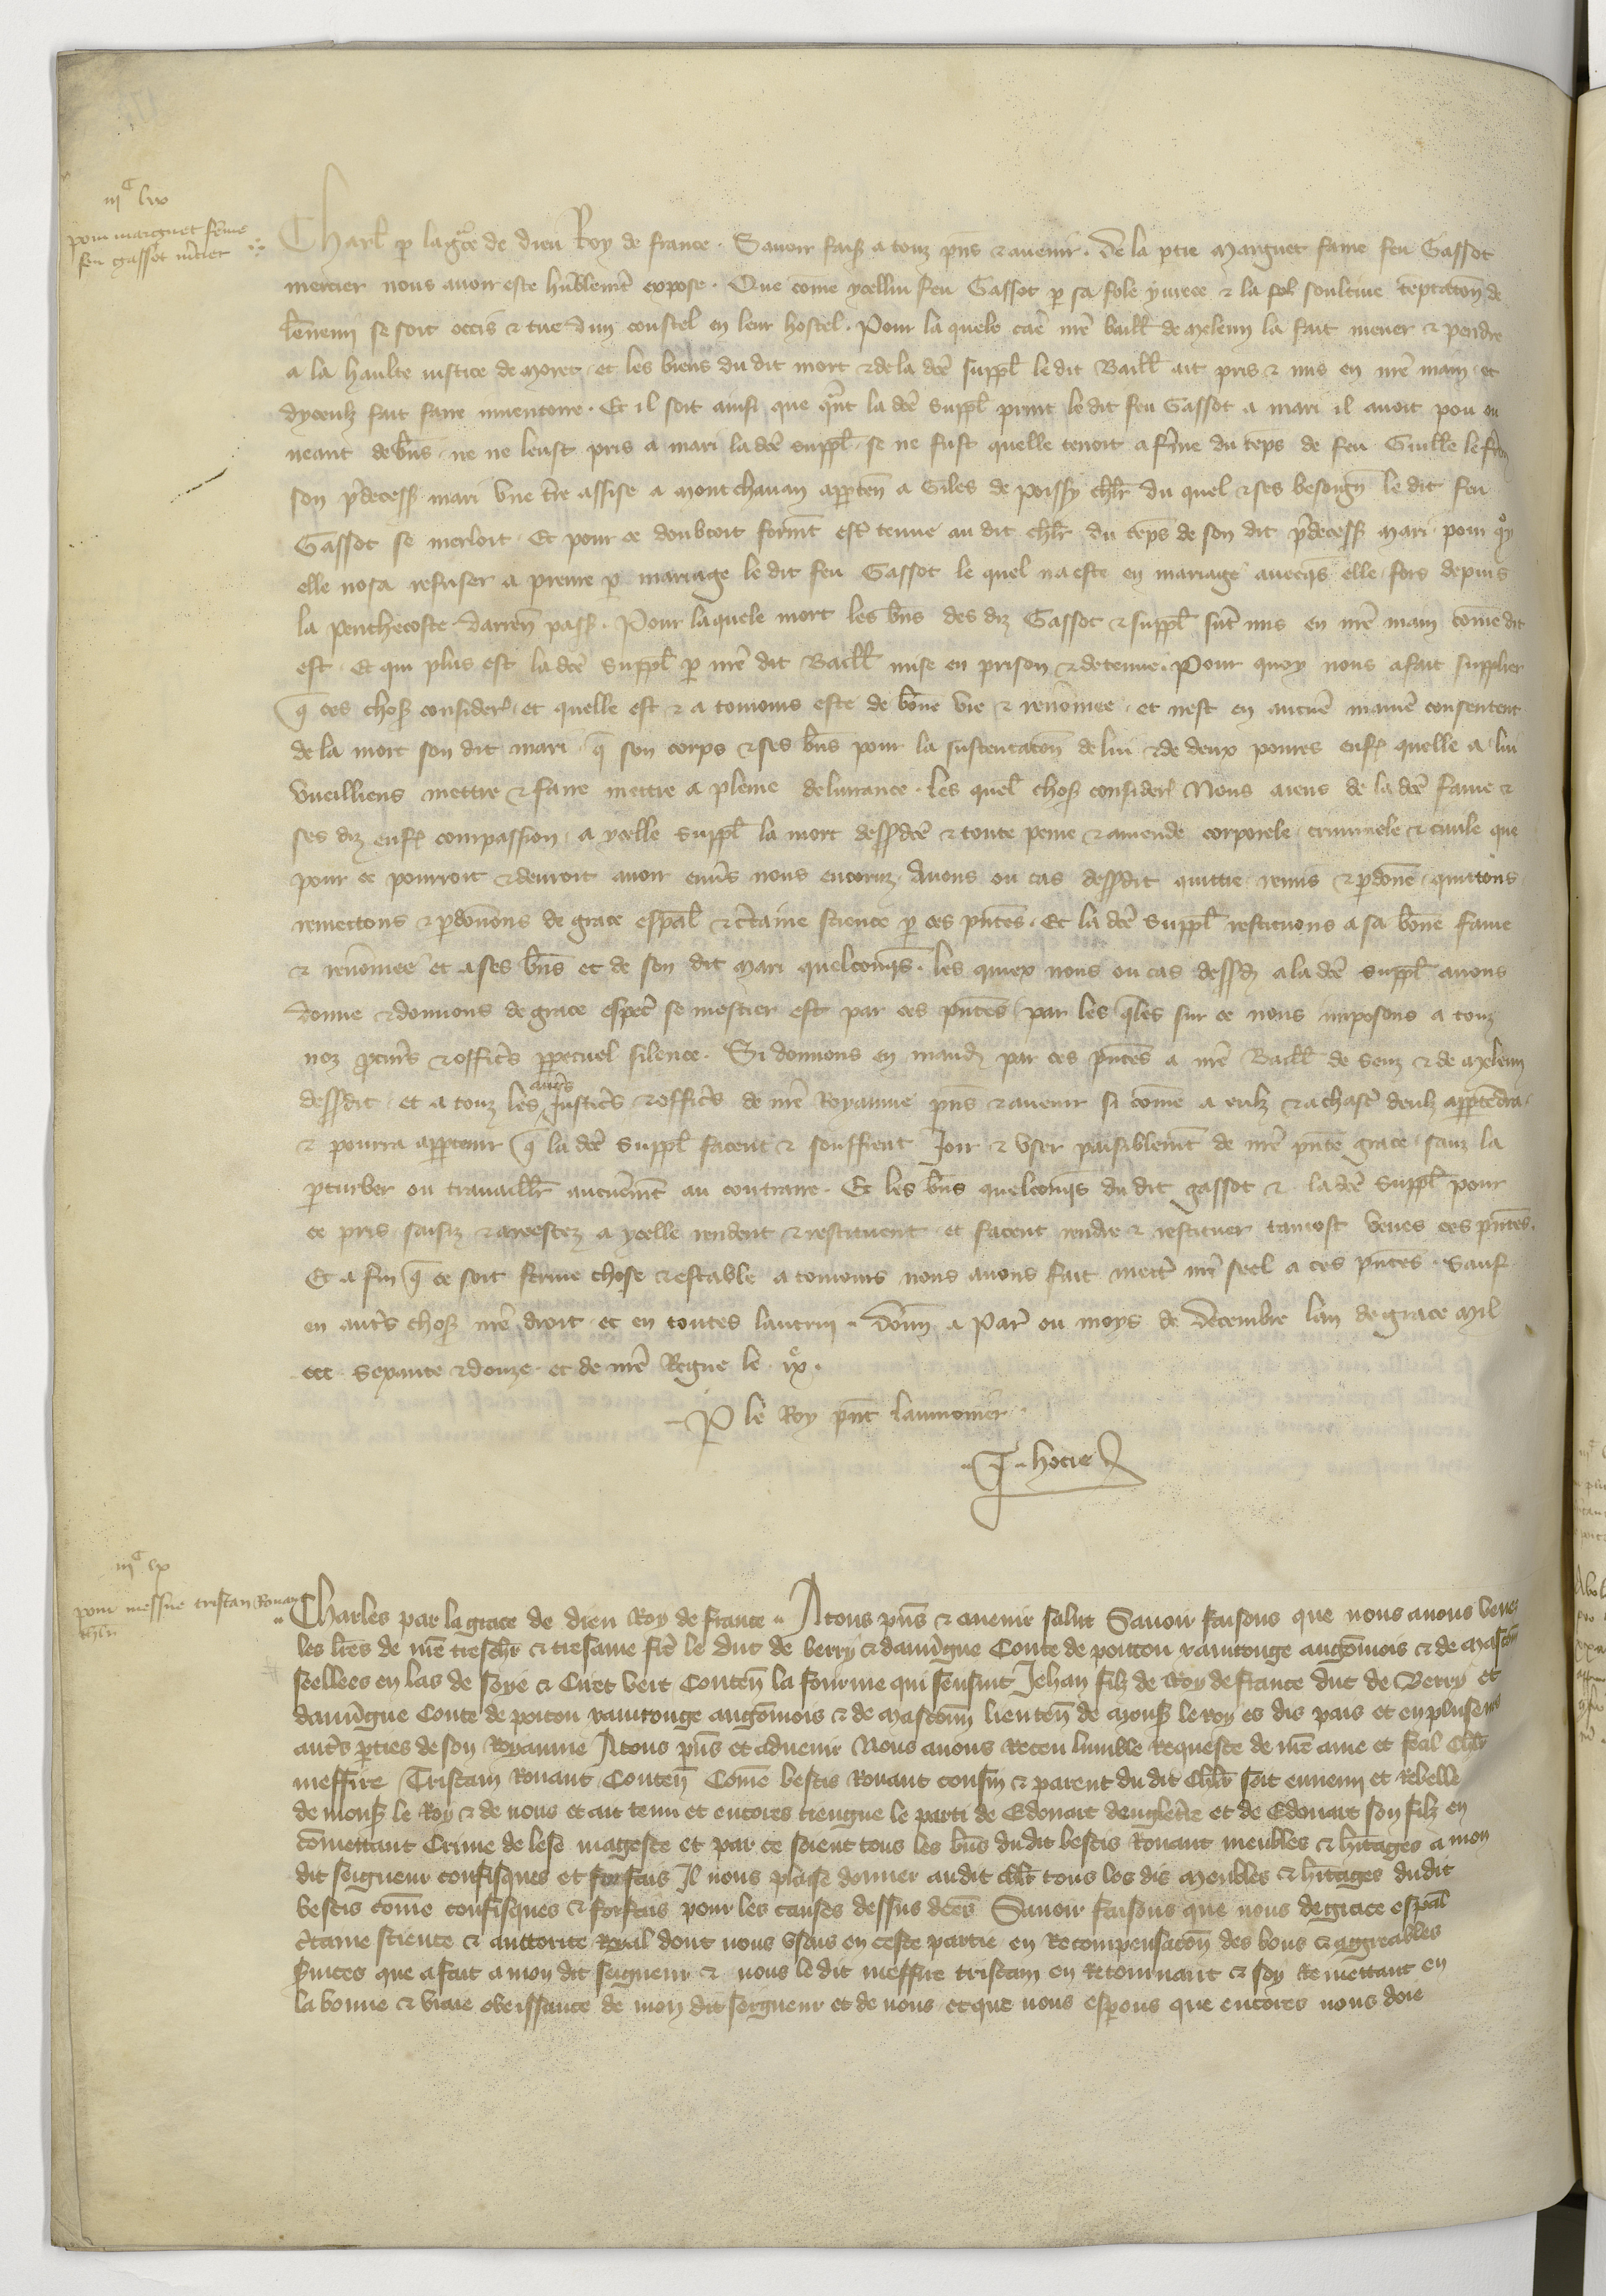 iijᶜ lix
pour marguet fe̅me
feu gassot m̾cier
Charl̕ p̱ la gr̅ce de dieu Roy de france . Sauoir fais̕ a touz pn̅s & auenir . De la p̱tie Marguet fame feu Gassot
mercier nous auoir este hu̅blem̅t expose . Que co̅me ycellui feu Gassot p̱ sa fole yurece & la soultiue te̅ptac̅on de
le̅nemi se soit occis & tue dun coustel en leur hostel . Pour la quele cae̅ nr̅e baill̕ de Meleun la fait mener & pendre
a la haulte iustice de Moret . et les biens du dit mort & de la dc̅e suppl̕ le dit Baill̕ ait pris & mis en nr̅e main et
dyceulz fait faire inuentoire . Et il soit ainsi que qn̅t la dc̅e suppl̕ prinst le dit feu Gassot a mari il auoit pou ou
neant de bn̅s . ne ne leust pris a mari la dc̅e suppl̕ se ne fust quelle tenoit a f̾me du te̅ps de feu Guill̅e
son p̾decess̕ mari vne t̾re assise a Montchauan app̱ten̅ a Giles de Poissy chl̅r du quel & ses besoign̅ le dit feu
Gassot se mesloit . Et pour ce doubtoit form̅t est̾ tenue au dit chl̅r du te̅ps de son dit p̾decess̕ mari . pour quoy
elle nosa refuser a prenre p̱ mariage le dit feu Gassot le quel na este en mariage auecqs̅ elle fors depuis
la penthecoste darren̅ pass̕ . Pour la quele mort les bn̅s des diz Gassot & suppl̕ su̅t mis en nr̅e main co̅me dit
est . Et qui plus est la dc̅e suppl̕ p̱ nr̅e dit Baill̕ mise en prison & detenue . Pour quoy nous a fait supplier
q̅ ces chos̕ consider̕ . et quelle est & a touiours este de bo̅ne vie & reno̅mee . et nest en aucue̅ manie̅ consentent
de la mort son dit mari q̅ son corps & ses bn̅s pour la sustentac̅on de lui & de deux poures enf̕ quelle a lui
vueilliens mettre & faire mettre a pleine deliurance . Les quel̕ chos̕ consider̕ Nous aiens de la dc̅e fame &
ses diz enf̕ compassion . a ycelle suppl̕ la mort dessdc̅e & toute peine & amende corporele criminele & ciuile que
pour ce pourroit & deuroit auoir enu̾s nous encoruz Auons ou cas dessdit quittie remis & p̱done̅ . quittons
remettons & p̱do̅nons de grace esp̅al & c̾taine science p̱ ces pn̅tes . Et la dc̅e suppl̕ restituons a sa bo̅ne fame
& reno̅mee et a ses bn̅s et de son dit mari quelcoqs̅ . les quiex nous ou cas dessd̕ a la dc̅e suppl̕ auons
donne & donnons de grace espec̾ se mestier est par ces pn̅tes . par les q̅les sur ce nous imposons a touz
noz p̱cur̾s & offic̾s p̱petuel silence . Si donnons en mand̕ par ces pn̅tes a nr̅e Baill̕ de Senz & de Meleun
dessdit . et a touz les aut̾s Justic̾s & offic̾s de nr̅e Royaume pn̅s & auenir si co̅me a eulz & a chascu̅ deulz app̱te̅dra
& pourra app̱tenir q̅ la dc̅e suppl̕ facent & seuffrent Joir & vser paisiblem̅t de nr̅e pn̅te grace sanz la
p̱turber ou trauaill̕r aucunem̅t au contraire . Et les bn̅s quelcoqs̅ du dit gassot & la dc̅e suppl̕ pour
ce pris saisiz & arrestez a ycelle rendent & restituent . et facent rendre & restituer tantost veues ces pn̅tes .
Et a fin q̅ ce soit ferme chose & estable a touiours nous auons fait mett̾ nr̅ seel a ces pn̅tes . Sauf
en aut̾s chos̕ nr̅e droit et en toutes lautrui . Donn̅ a Par̕ ou moys de Decembre lan de grace Mil
ccc . sexante & douze . et de nr̅e Regne le . ixᵉ .
P̱ le Roy pn̅t laumonier .
.. J .. hocie
iijᶜ lx
pour messire tristan Rouaut
chl̅r
Charles par la grace de dieu Roy de france .. A tous pn̅s & auenir salut Sauoir faisons que nous auons veues
les lr̅es de nr̅e treschr̅ & tresame fr̅e le duc de berry & dauu̾gne Conte de poitou xantonge angomois & de Mascon̅
seellees en las de soye & Cire vert Conten̅ la fourme qui sensuit Jehan filz de Roy de france duc de Berry et
dauu̾gne Conte de poitou xantonge angomois & de Mascon̅ lieuten̅ de Mons̕ le roy es dis pais et en plus̅eurs
aut̾s p̱ties de son Royaume A tous pn̅s et aduenir Nous auons Receu lumble Requeste de nr̅e ame et feal chl̅r
messire Tristain Rouaut Conten̅ Co̅me bestis Rouaut cousin & parent du dit chl̅r soit ennemi et Rebelle
de mons̕ le Roy & de nous et ait tenu et encores tiengne le parti de Edouart denglet̾re et de Edouart son filz en
co̅mettant Crime de lese mageste et par ce soient tous les bn̅s du dit bestis Rouaut meubles & h̾itages a mon
dit seigneur confisques et forfais Il nous plaise donner audit chl̅r tous les dis Meubles & h̾itages dudit
bestis co̅me confisques & forfais pour les causes dessus dc̅es Sauoir faisons que nous de grace esp̅al
c̾taine science & auttorite Royal dont nous vsons en ceste partie en Recompensac̅on des bons & aggreables
s̾uices que a fait a mon dit seigneur & nous le dit messire tristain en Retournant & soy Remettant en
la bonne & vraie obeissance de mon dit seigneur et de nous et que nous esp̱ons que encores nous doie